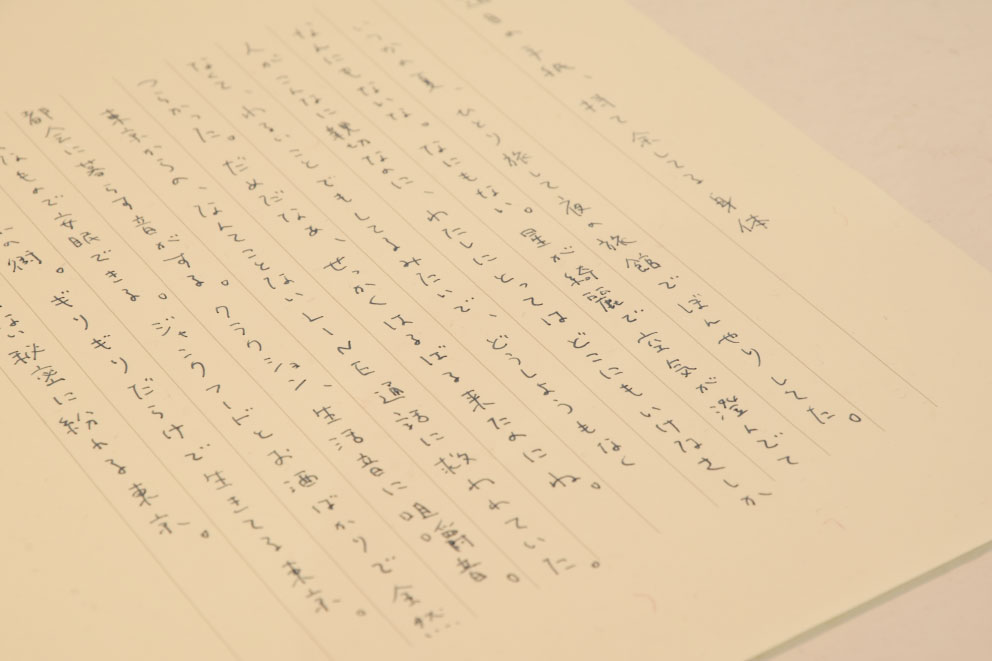 目の手紙、持て余してる身体
いつかの夏、ひとり旅して夜の旅館でぼんやりしてた。
なんにもないな。なにもない。星が綺麗で空気が澄んでて
人がこんなに親切なのに、わたしにとってはどこにもいけなさしか
なくて、わるいことでもしてるみたいで、どうしようもなく
つらかった。だめだなぁ、せっかくはるばる来たのにね。
東京からの、なんてことないLINE通話に救われていた。
都会に暮らす音がする。クラクション、生活音に咀嚼音。
なもので安眠できる。ジャンクフードとお酒ばかりで全然…
の街。ギリギリだらけで生きてる東京。
ない秘密に紛れる東京。